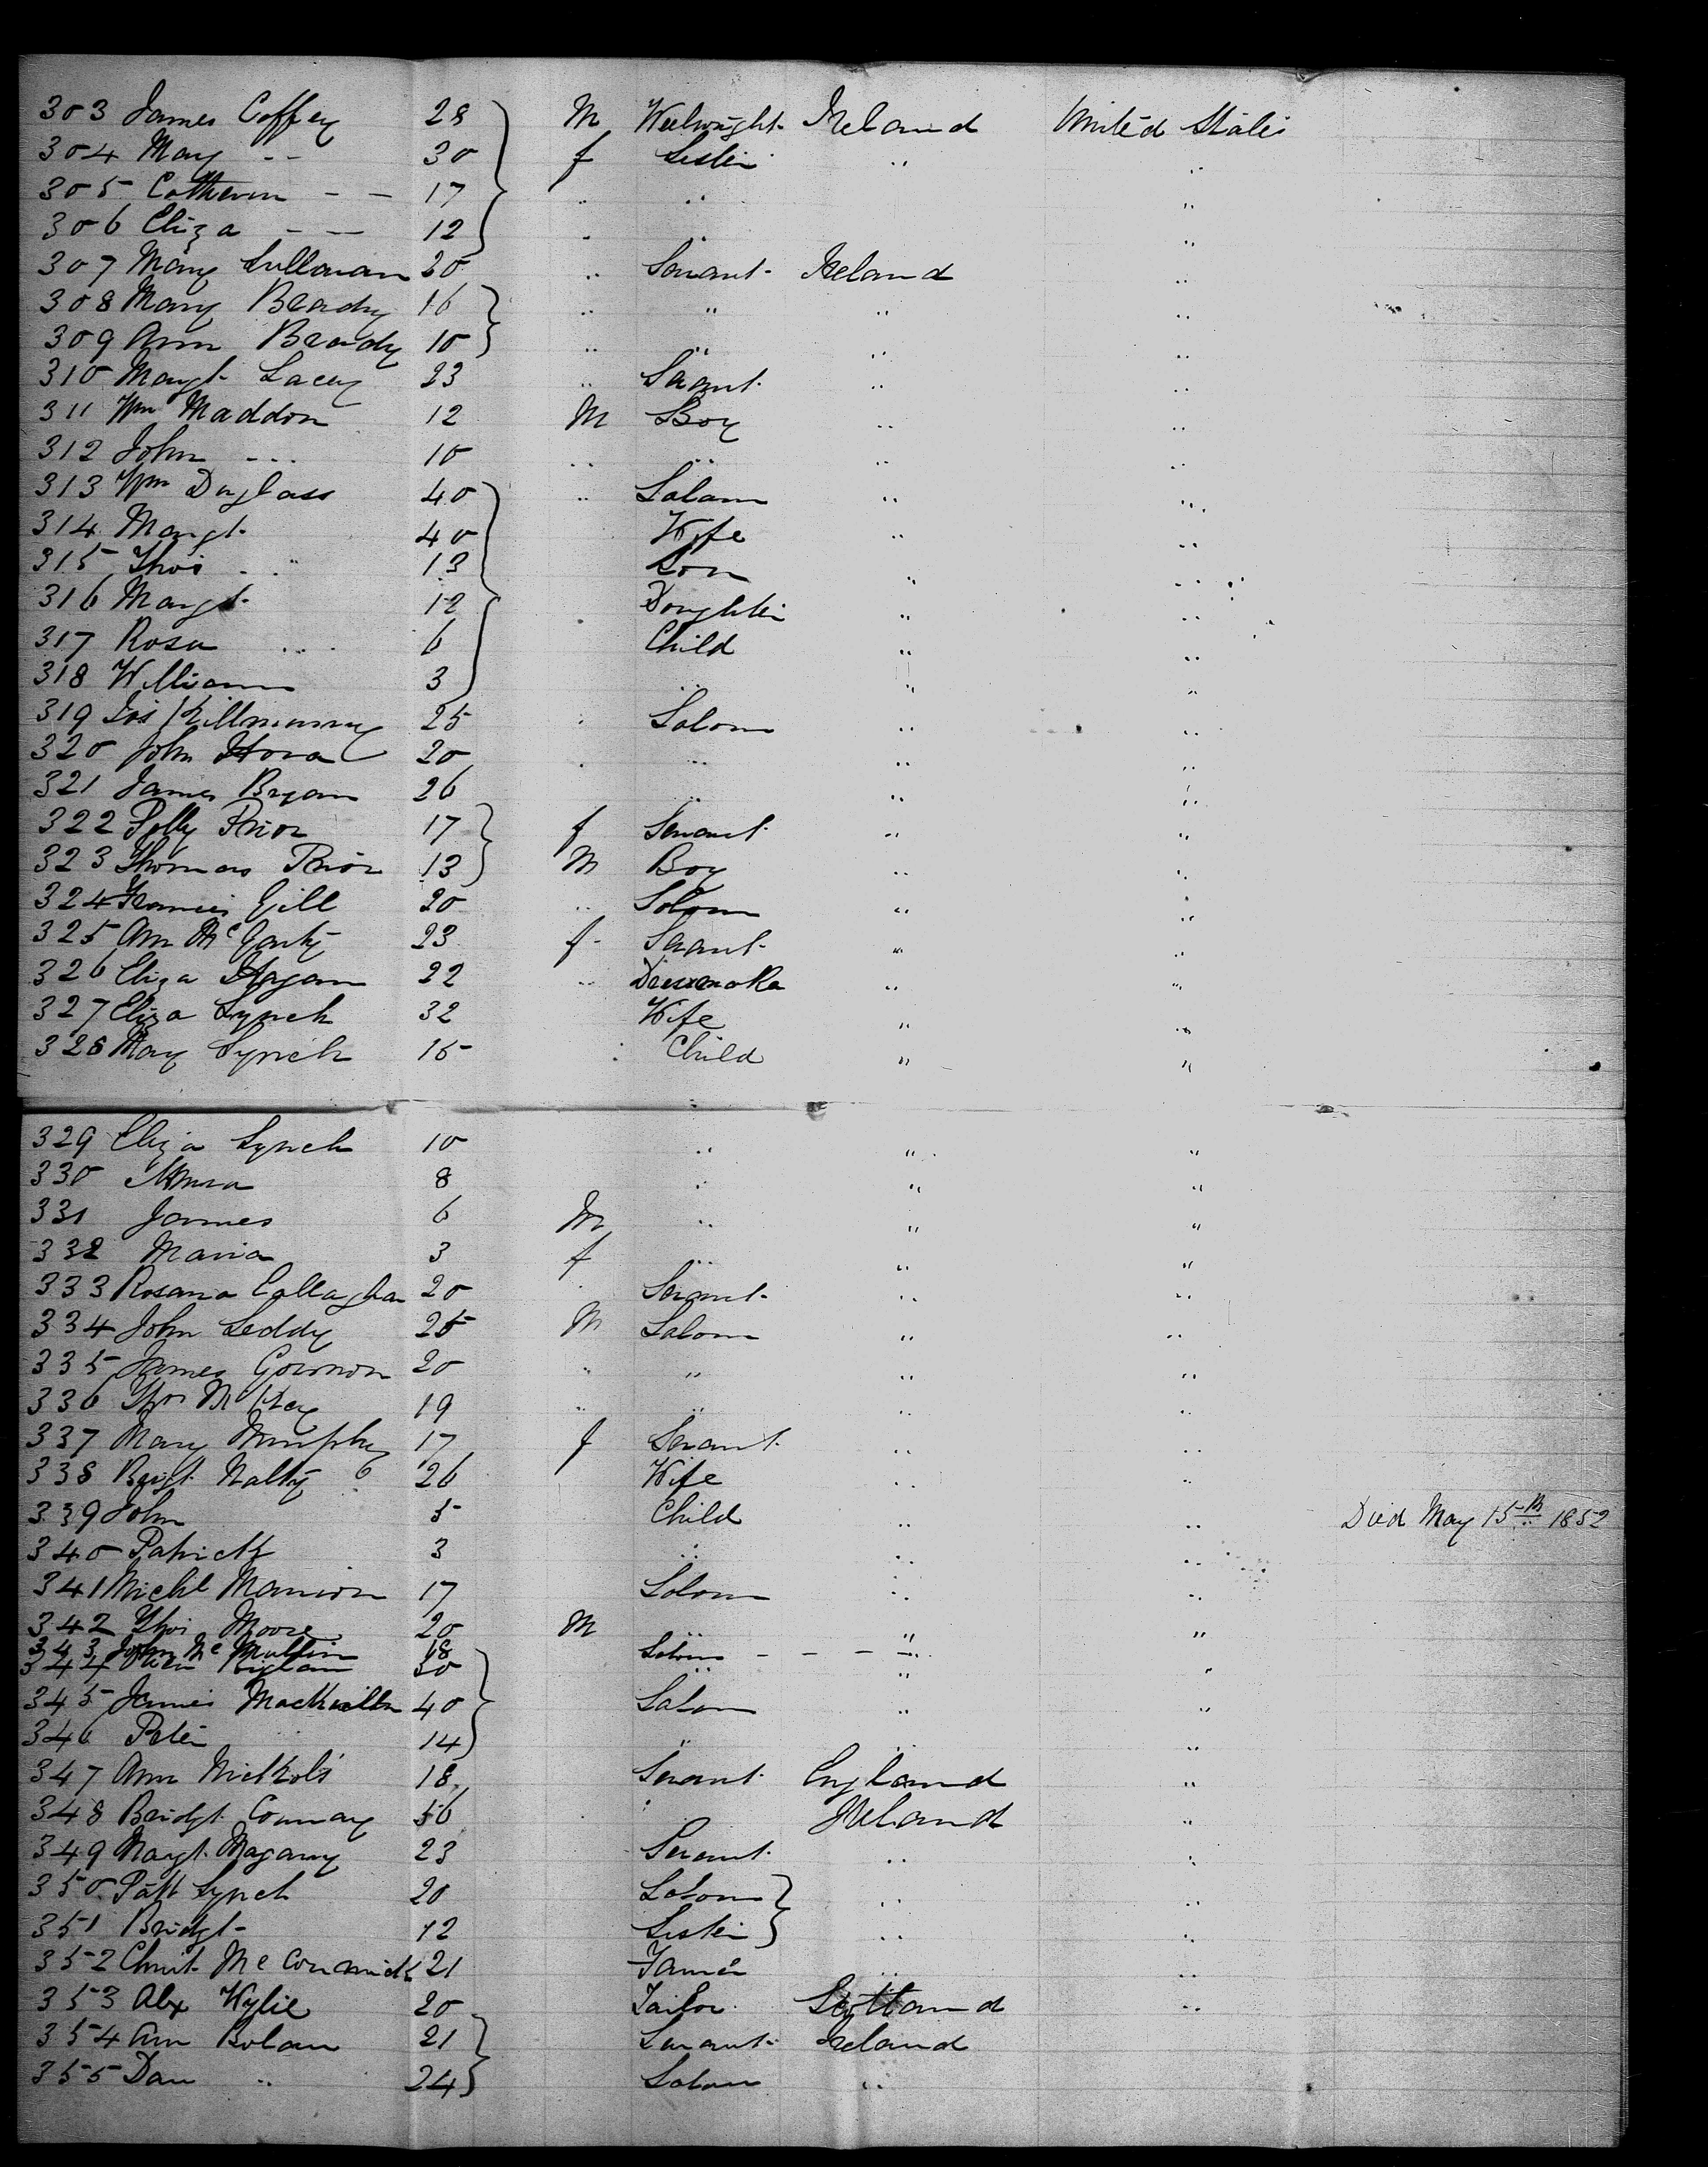 303 James Coffey 28 M Weelwright Ireland United States
304 Mary -- 30 f Sister " "
305 Catherin -- 17 " " "
306 Eliza -- 12 " " "
307 Mary Sullavan 20 " Servant Ireland "
308 Mary Brady 16 " " " "
309 Ann Brady 10 " " " "
310 Margt Lacey 23 " Servant " "
311 Wm Maddon 12 M Boy " "
312 John --- 10 " " " "
313 Wm Duglass 40 " Labour " "
314 Margt 40 Wife " "
315 Thos " 13 Son " "
316 Margt 12 Doughter " "
317 Rosa " 6 Child " "
318 William 3 " " "
319 25 Labour " "
320 John Hora 20 " " "
321 James Bryan 26 " " "
322 Polly Prior 17 f Servant " "
323 Thomas Prior 13 M Boy " "
324 Francis Gill 20 " Labour " "
325 Ann McGarty 23 f Servant " "
326 Eliza Hagan 22 " Dressmaker " "
327 Eliza Lynch 32 Wife " "
328 Mary Lynch 15 " Child " "
329 Eliza Lynch 10 " " "
330 8 " " "
331 James 6 M " " "
332 Maria 3 f " " "
333 Rosana Callaghan 20 Servant " "
334 John Leddy 25 M Labour " "
335 James Gormon 20 " " " "
336 Thos McKay 19 " " " "
337 Mary Murphy 17 f Servant " "
338 Bridgt Nalty 26 Wife " "
339 John 5 Child " " Died May 15th 1852
340 Patrick 3 " " "
341 Michl Mannion 17 Labour " "
342 Thos Moore 20 M " " "
343 John McMullin 18 Labour - - - "
344 30 " " "
345 James 40 Labour " "
346 Peter 14 " " "
347 Ann Nickols 18 Servant England "
348 Bridgt Conway 56 " Ireland "
349 Margt Magarry 23 Servant " "
350 Patt Lynch 20 Labour " "
351 Bridgt 12 Sister " "
352 Christ McCormick 21 Farmer " "
353 Alex Wylie 20 Tailor Scottland "
354 Ann Bolan 21 Servant Ireland
355 Dan " 24 Labour "